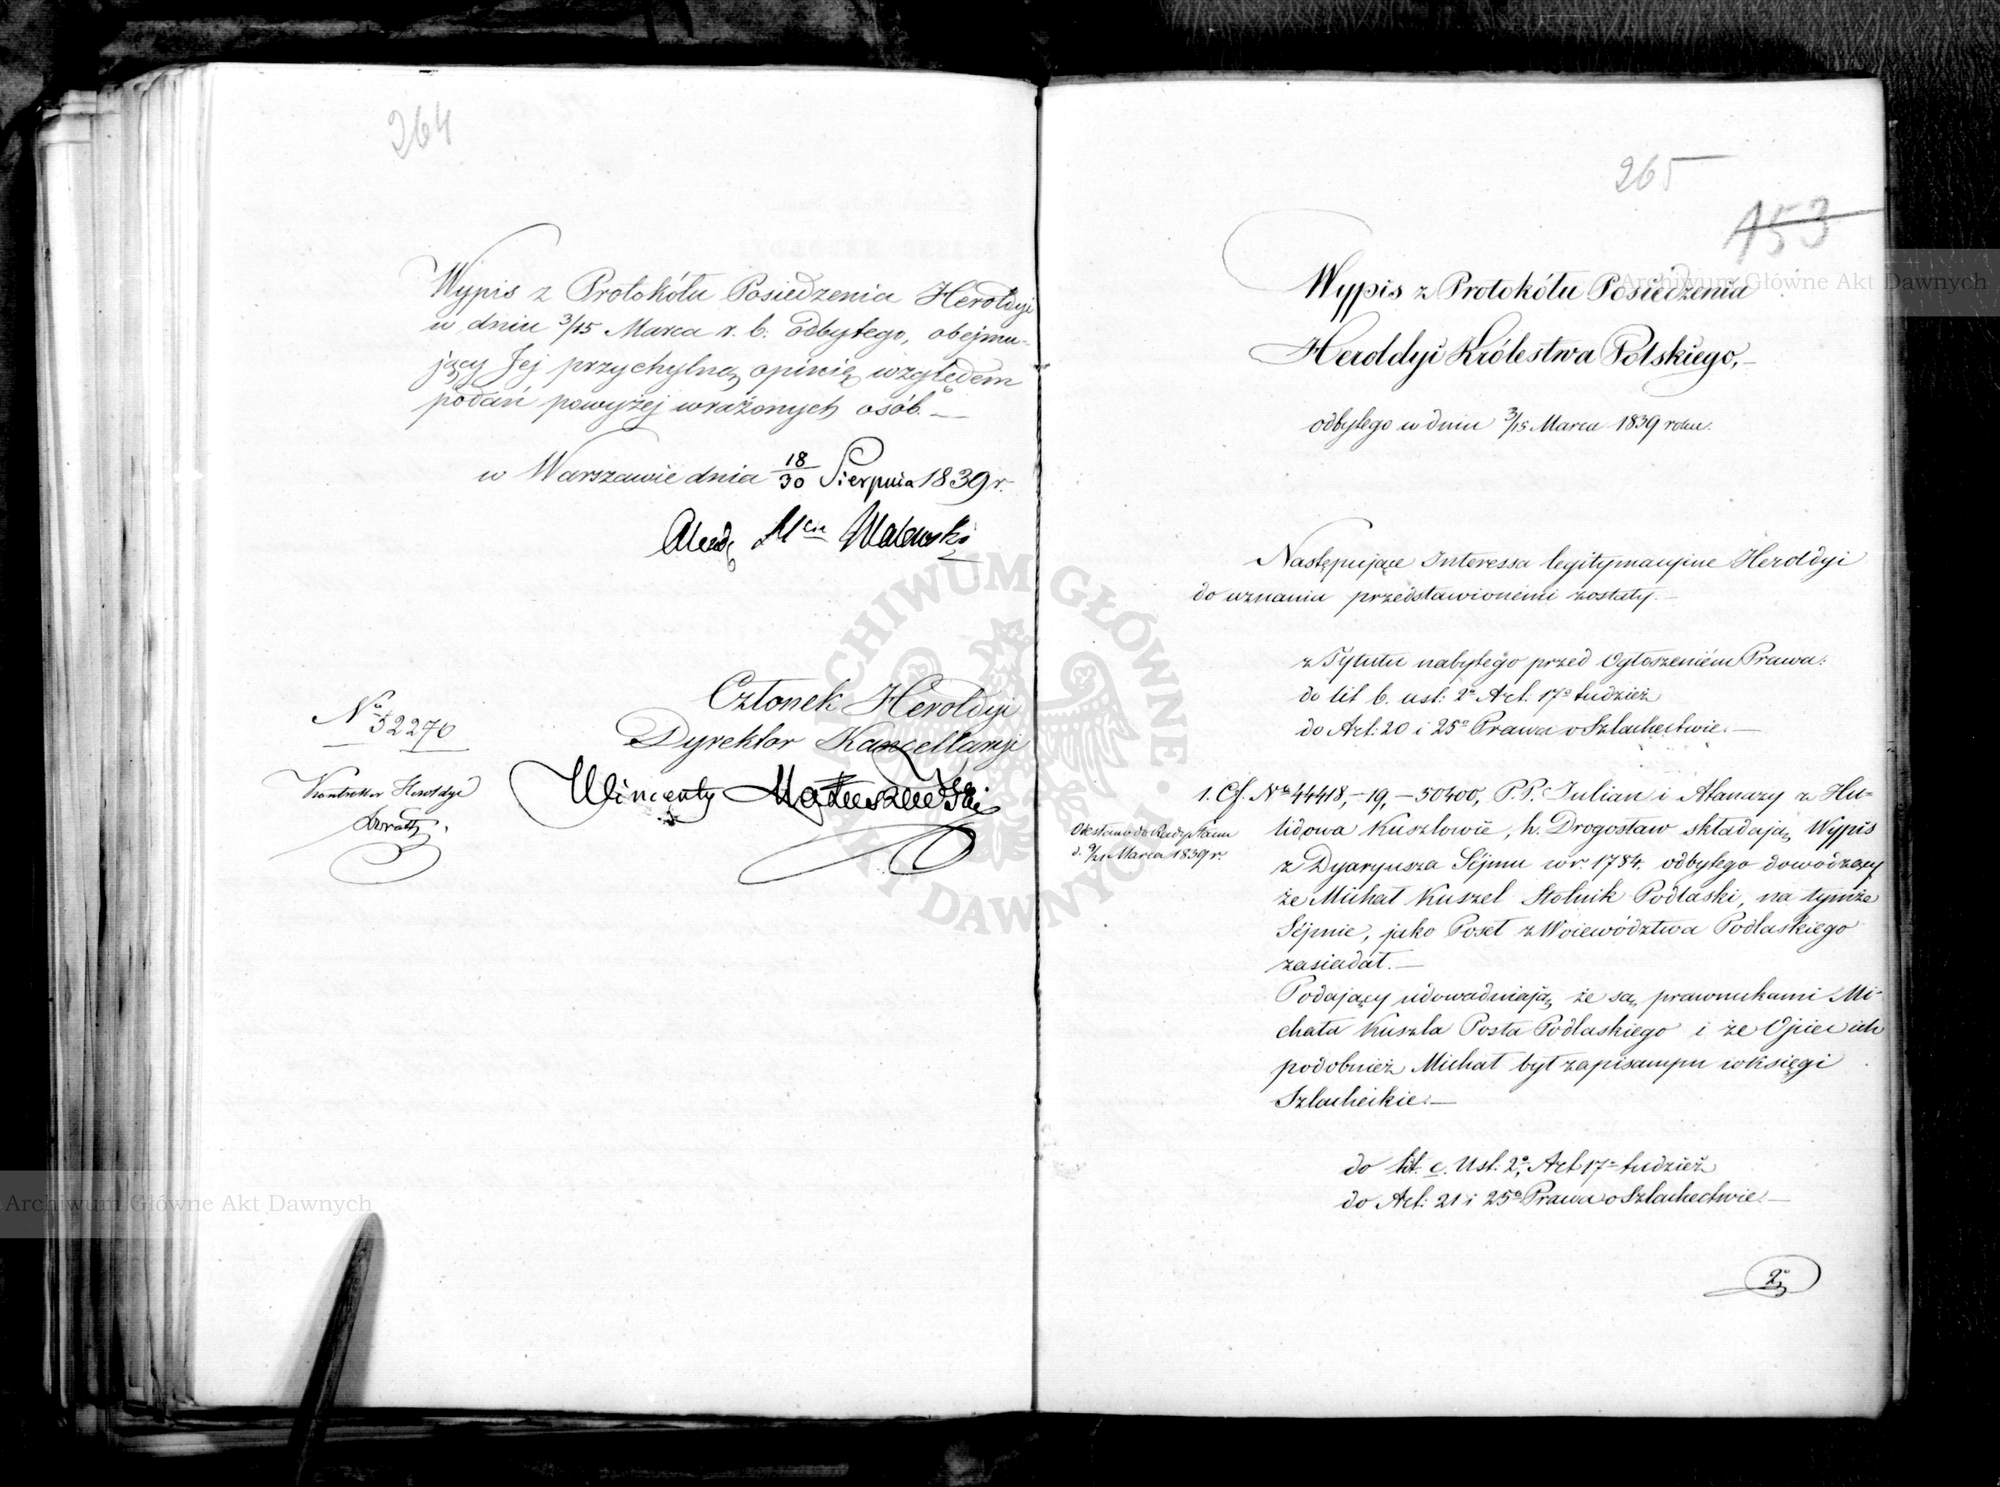 264
Wypis z Protokółu Posiedzenia Heroldyi
w dniu 3/15 Marca r. b. odbytego, obejmu-
jący Jej przychylną opinię względem
podań powyżej wrażonych osób. —
w Warszawie dnia 18/30 Sierpnia 1839 r.
Walewski
Członek Heroldyi
Dyrektor Kancellaryi
Wincenty Matuszewski
No 52270
Kontroller Heroldyi
265
153
Wypis z Protokółu Posiedzenia
Heroldyi Królestwa Polskiego, —
odbytego w dniu 3/15 Marca 1839 roku.
Następujące Interessa legitymacyine Heroldyi
do uznania przedstawionemi zostały. —
z Tytułu nabytego przed Ogłoszeniem Prawa:
do lit b. ust: 2o Art: 17o tudzież
do Art: 20 i 25o Prawa o Szlachectwie. —
1. Cf. No 44418, –19, – 50400, P.P. Julian i Atanazy z Hu-
lidowa Kuszlowie, h. Drogosław składają Wypis
z Dyaryusza Sejmu w r. 1784. odbytego dowodzący
że Michał Kuszel Stolnik Podlaski, na tymże
Sejmie, jako Poseł z Woiewództwa Podlaskiego
zasiadał. —
Odesłano do Rady Stanu
d. 9/21 Marca 1839 r.
Podający udowadniają że są prawnukami Mi-
chała Kuszla Posła Podlaskiego i że Ojciec ich
podobnież Michał był zapisanym w księgi
Szlacheckie. —
do lit: c. Ust: 2o, Art 17o tudzież
do Art: 21 i 25o Prawa o Szlachectwie. —
2o
Archiwum Główne Akt Dawnych
Archiwum Główne Akt Dawnych
ARCHIWUM GŁÓWNE AKT DAWNYCH